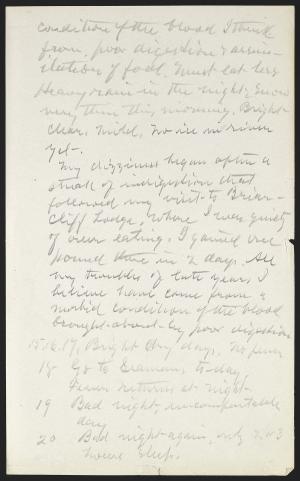 condition of the blood I think
from poor digestion & assim-
ilation of food. Must eat less
Heavy rain in the night; snow
very thin this morning. Bright
clear, mild, no ice in river
yet-.
My dizziness began after a
streak of indigestion that
followed my visit to Briar-
cliff Lodge, where I was guilty
of over eating. I gained one
pound there in 2 days. All
my troubles of late years I
believe have come from a
morbid condition of the blood
brought about by poor digestion
15, 16, 17, Bright dry days, no fever
18 Go to to-day,
Fever returns at night.
19 Bad night, uncomfortable
day
20 Bad night again, only 2 or 3
hours sleep.